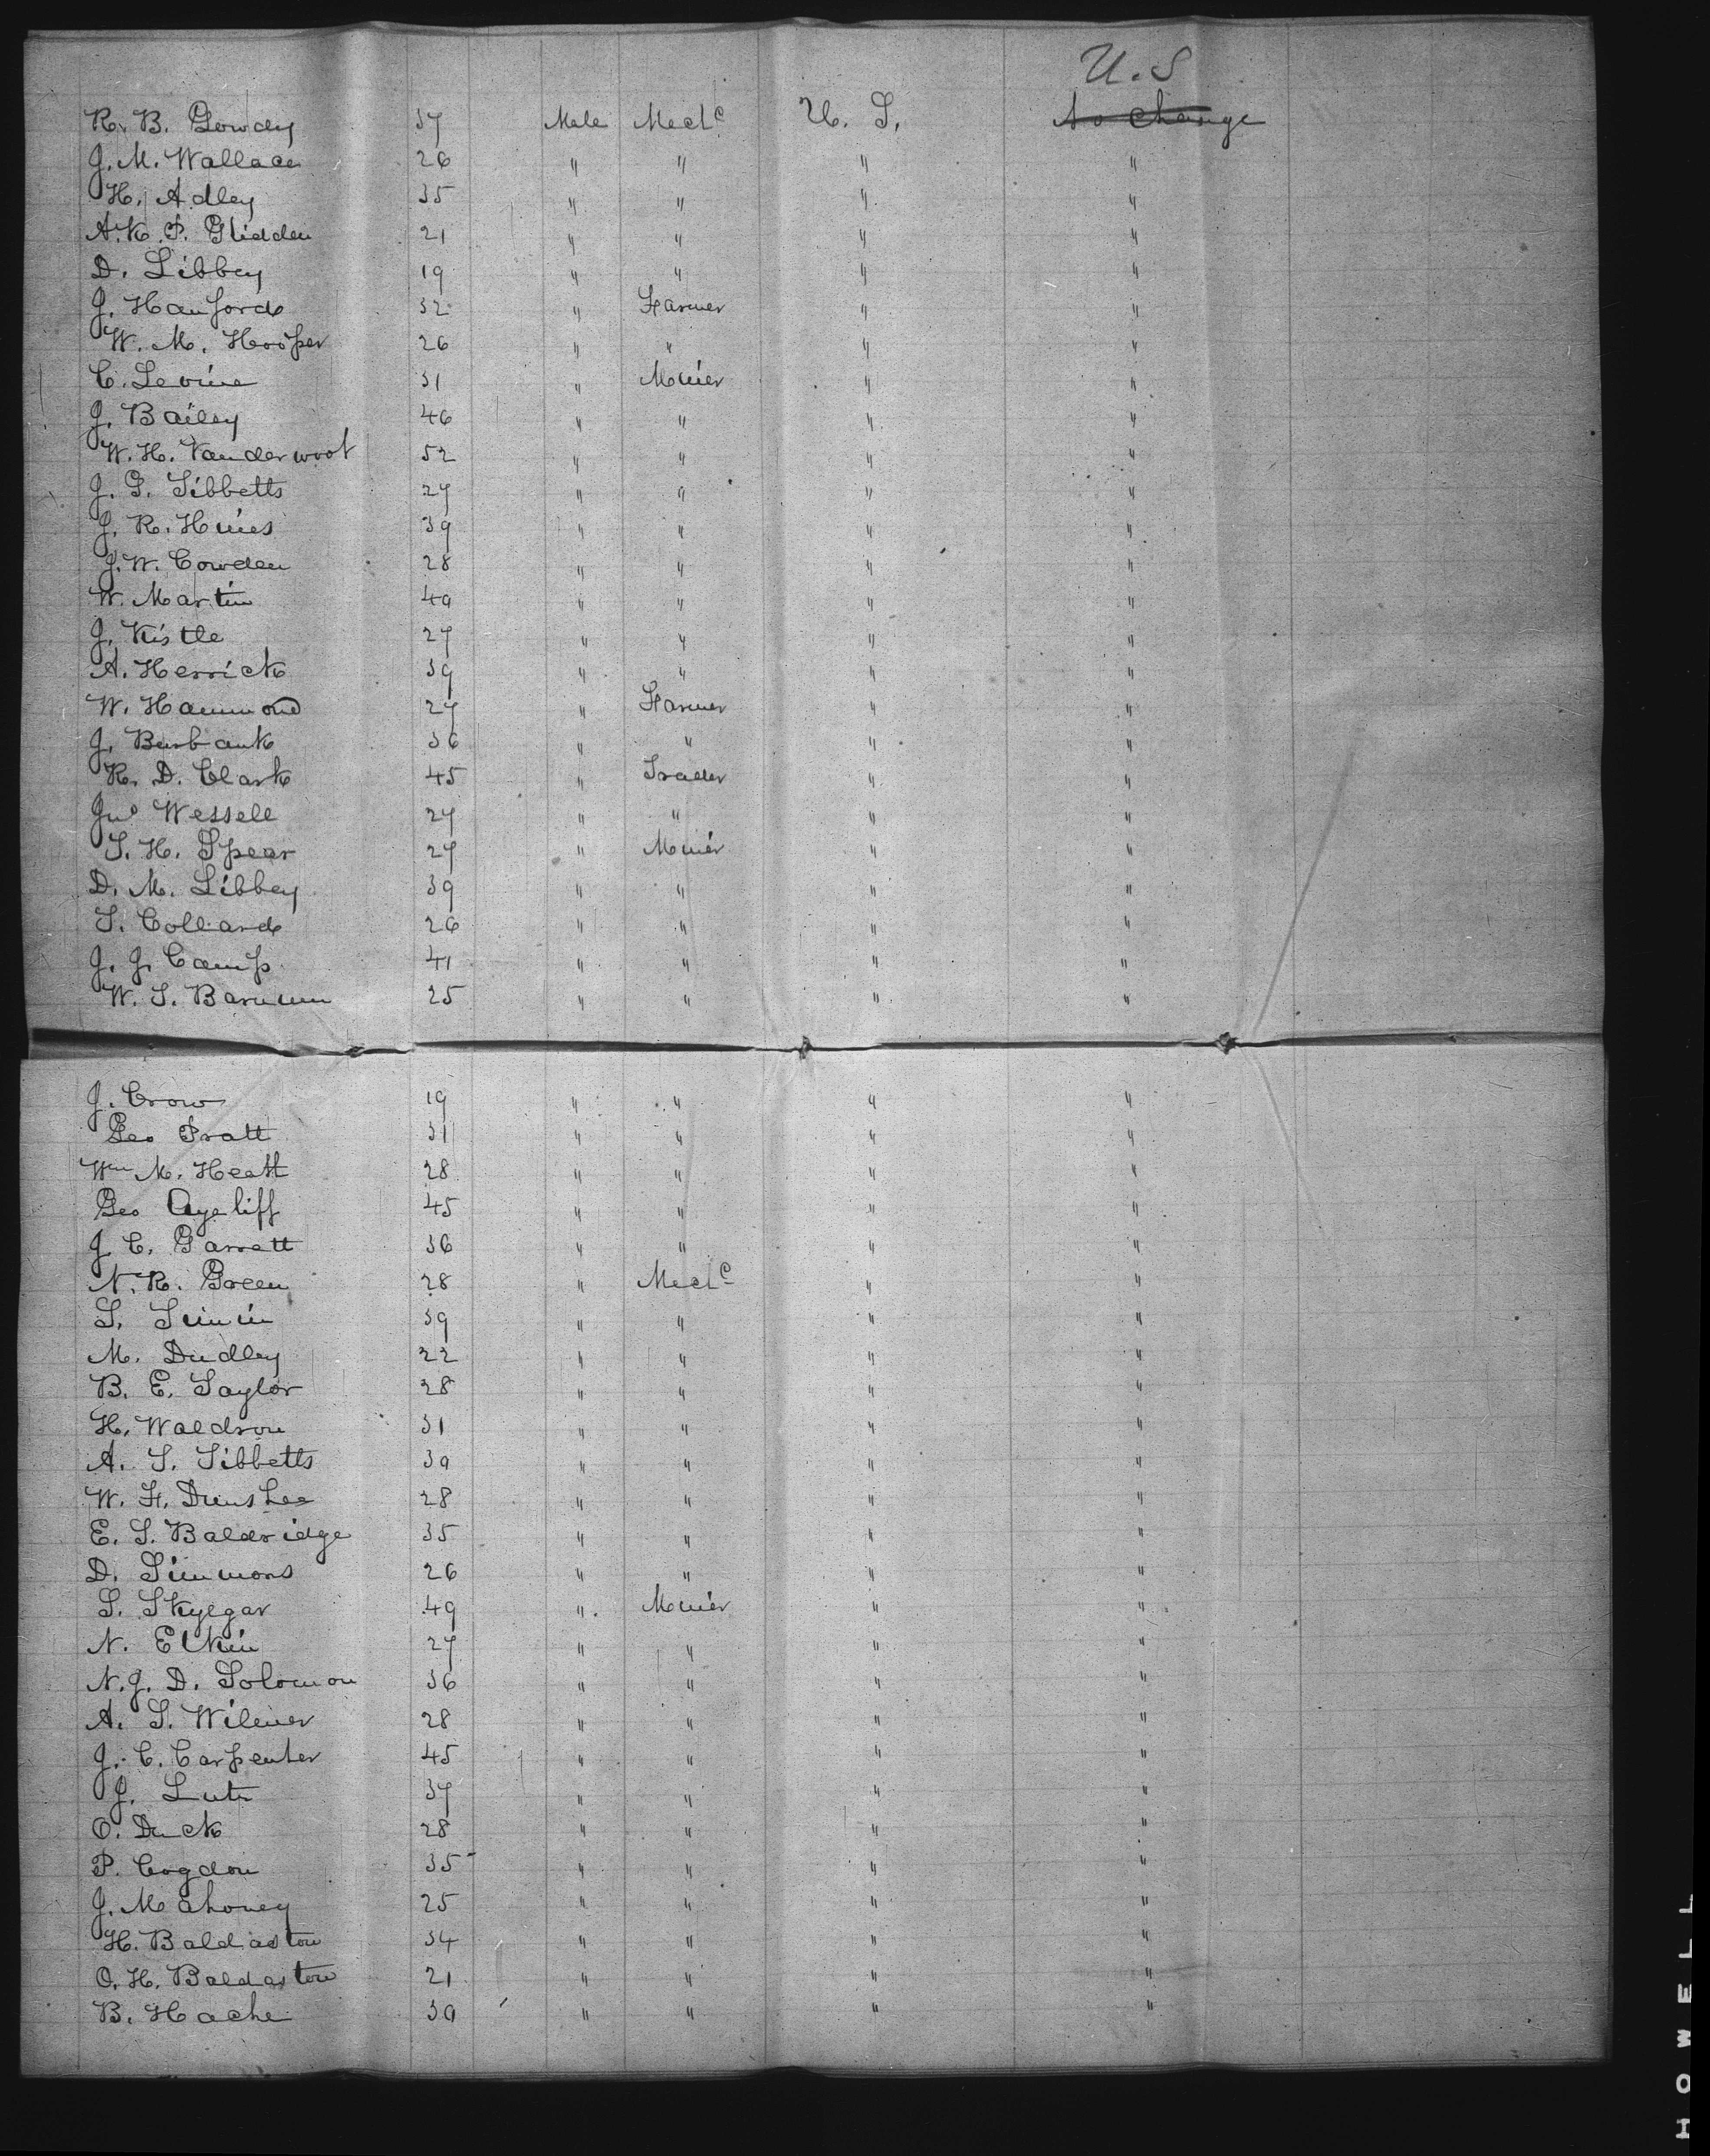 U.S
R. B. Gowdy 37 Male Mechc U. S. No change
J. M. Wallace 26 " " " "
H. Adley 35 " " " "
A. K. P. Glidden 21 " " " "
D. Libbey 19 " " " "
J. Hanford 32 " Farmer " "
W. M. Hooper 26 " " " "
C. Levine 31 " Miner " "
J. Bailey 46 " " " "
W. H. Vanderwoot 52 " " " "
J. G. Tibbetts 27 " " " "
J. R. Hines 39 " " " "
J. W. Cowden 28 " " " "
W. Martin 49 " " " "
J. Kistle 27 " " " "
A. Herrick 39 " " " "
W. Hammond 27 " Farmer " "
J. Burbank 36 " " " "
R. D. Clark 45 " Trader " "
Jno Wessell 27 " " " "
S. H. Spear 27 " Miner " "
D. M. Libbey 39 " " " "
T. Collard 26 " " " "
J. J. Camp 41 " " " "
W. S. Barnum 25 " " " "
J. Crow 19 " " " "
Geo Pratt 31 " " " "
Wm M. Heatt 28 " " " "
Geo Aycliff 45 " " " "
J. C. Garrett 36 " " " "
N. R. Green 28 " Mechc " "
S. 39 " " " "
M. Dudley 22 " " " "
B. E. Taylor 28 " " " "
H. Waldron 31 " " " "
A. S. Tibbetts 39 " " " "
W. H. Dunshee 28 " " " "
E. S. Baldridge 35 " " " "
D. Simmons 26 " " " "
S. Skyegar 49 " Miner " "
N. Elkin 27 " " " "
N. J. D. Solomon 36 " " " "
A. S. Wilmer 28 " " " "
J. C. Carpenter 45 " " " "
J. Lutr 37 " " " "
O. Duck 28 " " " "
P. Cogdon 35 " " " "
J. Mahoney 25 " " " "
H. Baldaston 34 " " " "
O. H. Baldaston 21 " " " "
B. Hache 39 " " " "
HOWELL